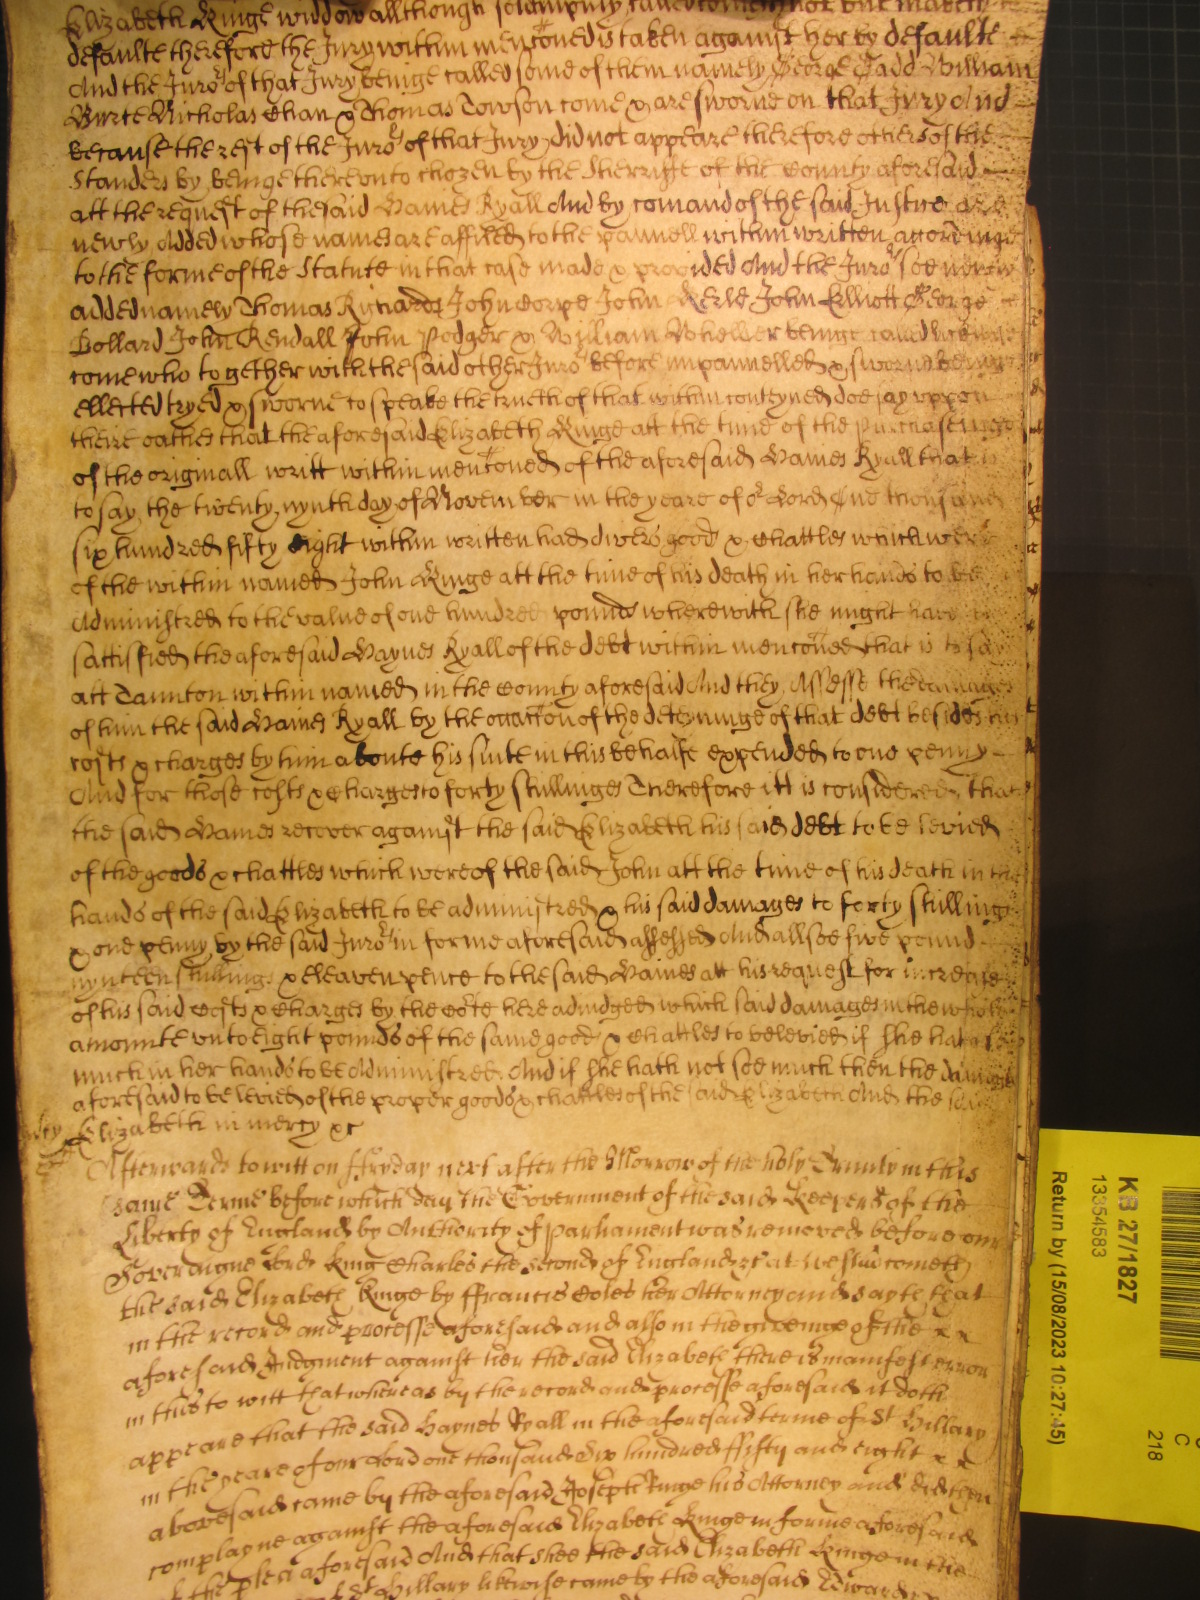 Elizabeth Ringe widdow allthough solempnly called cometh not but maketh
defaulte therefore the Jury within menconed is taken against her by defaulte
And the Juro's of that Jury beinge called some of them namely George Cadd William
Burte Nicholas Chan & Thomas Towson come & are sworne on that Jury And
because the rest of the Juro's of that Jury did not appeare therefore others of the
Standers by beinge therevnto chozen by the Sherriffe of the County aforesaid
att the request of the said Haines Ryall And by comand of the said Justice are
newly Added whose names are affiled to the pannell within written accordinge
to the forme of the Statute in that case made & provided And the Juro's soe newly
added namely Thomas Richards John Corpe John Kerle John Elliott George
Bollard John Kendall John Podger & William Wheller beinge called likewise
come who together with the said other Juro's before impannelled & sworne beinge
ellected tryed & sworne to speake the trueth of that within conteyned doe say vppon
theire oathes that the aforesaid Elizabeth Ringe att the time of the purchaseinge
of the originall writt within menconed of the aforesaid Haines Ryall that is
to say the twenty nynth day of November in the yeare of or Lord One thousand
six hundred fifty eight within written had divers goods & Chattles which were
of the within named John Ringe att the time of his death in her hands to be
Administred to the value of one hundred pounds wherewith she might have
sattisfied the aforesaid Haynes Ryall of the debt within menconed that is to say
att Taunton within named in the County aforesaid And they Assesse the damages
of him the said Haines Ryall by the occacon of the deteyninge of that debt besides his
costs & charges by him aboute his suite in this behalfe expended to one penny
And for those costs & Charges to forty shillinges Therefore itt is considered that
the said Haines recover against the said Elizabeth his said debt to be levied
of the goods & chattles which were of the said John att the time of his death in the
hands of the said Elizabeth to be administred & his said damages to forty shillings
& one penny by the said Juro's in forme aforesaid assessed And allsoe five pound
nynteen shillings & eleaven pence to the said Haines att his request for increase
of his said Costs & Charges by the Cote here adiudged which said damages in the whole
amounte vnto Eight pounds of the same goods & Chattles to be levied if she hath soe
much in her hands to be Administred And if she hath not soe much then the damages
aforesaid to be levied of the proper goods & chattles of the said Elizabeth And the said
Elizabeth in mercy &c
Afterwards to witt on ffryday next after the Morrow of the holy Trinity in this
same Terme before which day the Government of the said Keepers of the
Liberty of England by Authority of parliament was removed before our
Soveraigne Lord King Charles the second of England &c at Westm cometh
the said Elizabeth Ringe by ffrancis Coles her Attorney and sayth that
in the record and processe aforesaid and also in the giveinge of the x x
aforesaid Judgment against her the said Elizabeth there is manifest error
in this to witt that whereas by the record and processe aforesaid it doth
appeare that the said Haynes Ryall in the aforesaid terme of St Hillary
in the yeare of our Lord one thousand Six hundred ffifty and eight x x
abovesaid came by the aforesaid Joseph Ringe his Attorney and did then
complayne against the aforesaid Elizabeth Ringe in forme aforesaid
of the plea aforesaid And that shee the said Elizabeth Ringe in the
St Hillary likewise came by the aforesaid Edward
KB 27/1827
13354583
Return by (15/08/2023 10:27:45)
C
218